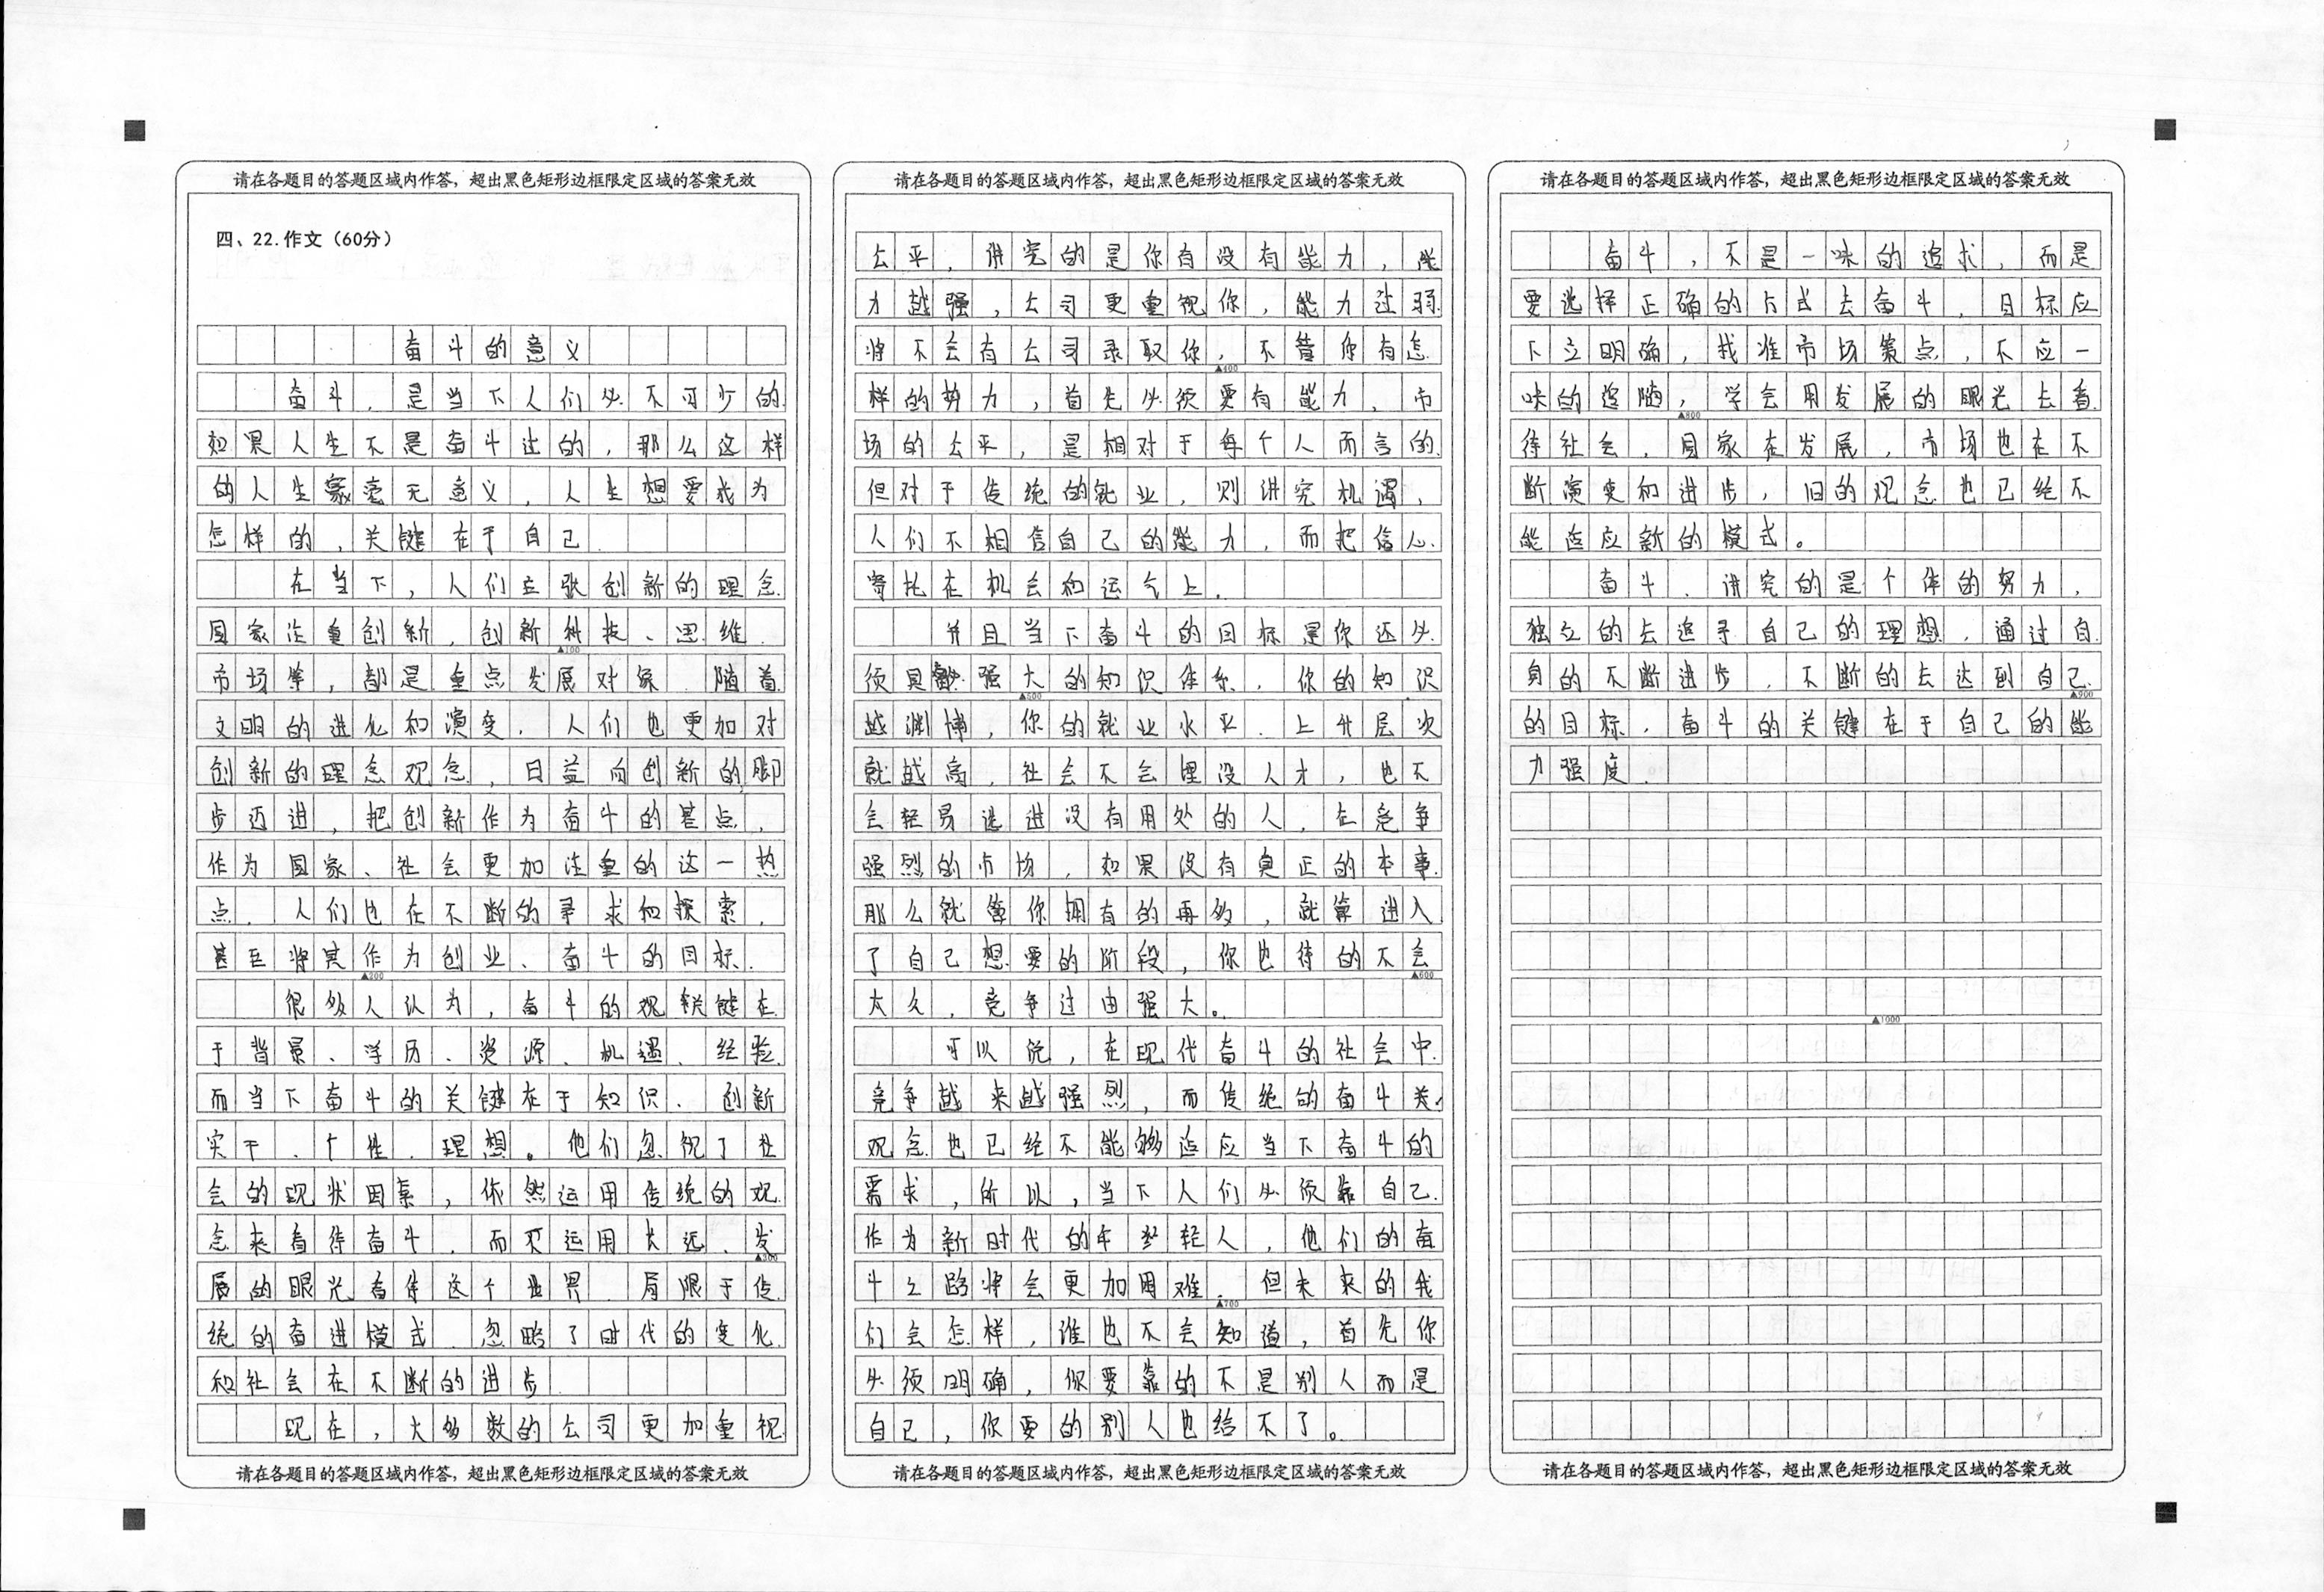 请在各题目的答题区域内作答，超出黑色矩形边框限定区域的答案无效
四、22.作文（60分）
奋斗的意义
奋斗，是当下人们必不可少的.
如果人生不是奋斗过的，那么这样
的人生毫无意义，人生想要成为
怎样的，关键在于自己.
在当下，人们立张创新的理念.
国家注重创新，创新科技、思维.
▲100
市场等，都是重点发展对象.随着
文明的进化和演变.人们也更加对
创新的理念观念，日益向创新的脚
步迈进，把创新作为奋斗的基点，
作为国家、社会更加注重的这一热
点.人们也在不断的寻求和探索，
甚至将其作为创业、奋斗的目标.
▲200
很多人认为，奋斗的观关键在
于背景、学历、资源、机遇、经验.
而当下奋斗的关键在于知识、创新
实干、个性、理想。他们忽视了社
会的现状因素，依然运用传统的观
念来看待奋斗.而不运用长远、发
▲300
展的眼光看待这个世界.局限于传
统的奋进模式.忽略了时代的变化
和社会在不断的进步.
现在，大多数的公司更加重视
请在各题目的答题区域内作答，超出黑色矩形边框限定区域的答案无效
请在各题目的答题区域内作答，超出黑色矩形边框限定区域的答案无效
公平，讲究的是你有没有能力，能
力越强，公司更重视你，能力过弱.
将不会有公司录取你，不管你有怎
▲400
样的势力，首先必须要有能力.市
场的公平，是相对于每个人而言的.
但对于传统的就业，则讲究机遇，
人们不相信自己的能力，而把信心
寄托在机会和运气上.
并且当下奋斗的目标是你还必
须具 强大的知识体系.你的知识
▲500
越渊博，你的就业水平.上升层次
就越高.社会不会埋没人才，也不
会轻易选进没有用处的人.在竞争
强烈的市场，如果没有真正的本事.
那么就算你拥有的再多，就算进入
了自己想要的阶段，你也待的不会
▲600
太久，竞争过由强大。
可以说，在现代奋斗的社会中.
竞争越来越强烈，而传统的奋斗关
观念也已经不能够适应当下奋斗的
需求，所以，当下人们必须靠自己.
作为新时代的年轻人，他们的奋
斗之路将会更加困难.但未来的我
▲700
们会怎样，谁也不会知道，首先你
必须明确，你要靠的不是别人而是
自己，你要的别人也给不了。
请在各题目的答题区域内作答，超出黑色矩形边框限定区域的答案无效
请在各题目的答题区域内作答，超出黑色矩形边框限定区域的答案无效
奋斗，不是一味的追求，而是
要选择正确的方式去奋斗，目标应
下立明确，找准市场策点，不应一
味的追随，学会用发展的眼光去看
▲800
待社会，国家在发展，市场也在不
断演变和进步，旧的观念也已经不
能适应新的模式。
奋斗、讲究的是个体的努力，
独立的去追寻自己的理想，通过自
身的不断进步，不断的去达到自己
▲900
的目标，奋斗的关键在于自己的能
力强度.
▲1000
请在各题目的答题区域内作答，超出黑色矩形边框限定区域的答案无效